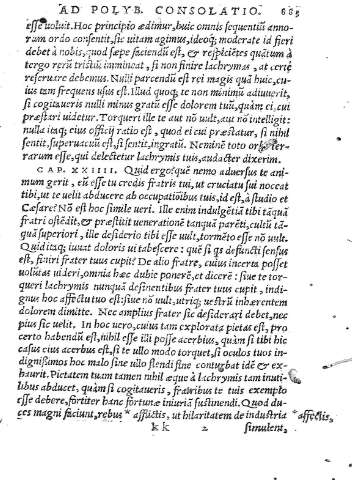 AD POLYB. CONSOLATIO. 685
esse uoluit. Hoc principio ædimur, huic omnis sequentiũ anno-
rum ordo consentit, sic uitam agimus, ideoq; moderate id fieri
debet à nobis, quod sæpe faciendũ est, & respiciẽtes quãtum à
tergo rerũ tristiũ immineat, si non finire lachrymas, at certe
reseruare debemus. Nulli parcendũ est rei magis quã huic, cu-
ius tam frequens usus est. Illud quoq; te non minimũ adiuuerit,
si cogitaueris nulli minus gratũ esse dolorem tuũ, quàm ei, cui
præstari uidetur. Torqueri ille te aut nõ uult, aut nõ intelligit:
nulla itaq; eius officij ratio est, quod ei cui præstatur, si nihil
sentit, superuacuũ est, si sentit, ingratũ. Neminẽ toto orbe ter-
rarum esse, qui delectetur lachrymis tuis, audacter dixerim.
CAP. XXIIII. Quid ergo? quẽ nemo aduersus te ani-
mum gerit, eũ esse tu credis fratris tui, ut cruciatu sui noceat
tibi, ut te uelit abducere ab occupatiõibus tuis, id est, à studio et
Cæsare? Nõ est hoc simile ueri. Ille enim indulgẽtiã tibi tãquã
fratri ostẽdit, & præstitit uenerationẽ tanquã parẽti, cultũ tã-
quã superiori, ille desiderio tibi esse uult, tormẽto esse nõ uult.
Quid itaq; iuuat dolori ui tabescere: quẽ si qs defunctis sensus
est, finiri frater tuus cupit? De alio fratre, cuius incerta posset
uolũtas uideri, omnia hæc dubie ponerẽ, et dicerẽ: siue te tor-
queri lachrymis nunquã desinentibus frater tuus cupit, indi-
gnus hoc affectu tuo est: siue nõ uult, utriq; uestrũ inhærentem
dolorem dimitte. Nec amplius frater sic desiderari debet, nec
pius sic uelit. In hoc uero, cuius tam explorata pietas est, pro
certo habendũ est, nihil esse illi posse acerbius, quàm si tibi hic
casus eius acerbus est, si te ullo modo torquet, si oculos tuos in-
dignissimos hoc malo sine ullo flendi fine conturbat idẽ & ex-
haurit. Pietatem tuam tamen nihil æque à lachrymis tam inuti-
libus abducet, quàm si cogitaueris, fratribus te tuis exemplo
esse debere, fortiter hanc fortunæ iniuriã sustinendi. Quod du-
ces magni faciunt, rebus * afflictis, ut hilaritatem de industria *affectis,
kk 2 simulent,